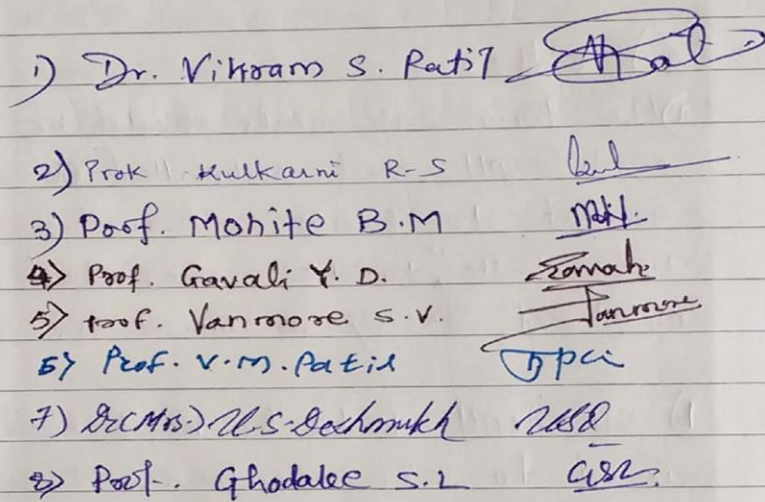 1) Dr. Vikram S. Patil
2) Prof. Kulkarni R-S
3) Prof. Mohite B.M
4) Prof. Gavali Y. D.
5) Prof. Vanmore S.V. Vanmore
6) Prof. V.M. Patil
7) Dr(Mrs.) U.S. Deshmukh USD
8) Prof. Ghodake S.L